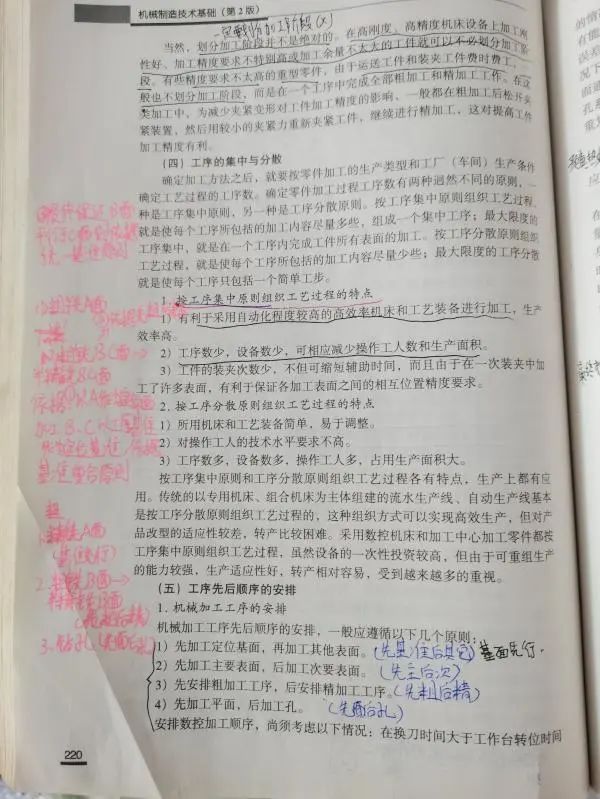 机械制造技术基础(第2版)
当然,划分加工阶段并不是绝对的。在高刚度、高精度机床设备上加工刚
性好、加工精度要求不特别高或加工余量不太大的工件就可以不必划分加工阶
段。有些精度要求不太高的重型零件,由于运送工件和装夹工件费时费工,一
般也不划分加工阶段,而是在一个工序中完成全部粗加工和精加工工作。在这
类加工中,为减少夹紧变形对工件加工精度的影响、一般都在粗加工后松开夹
紧装置,然后用较小的夹紧力重新夹紧工件,继续进行精加工,这对提高工件
加工精度有利。
(四)工序的集中与分散
确定加工方法之后,就要按零件加工的生产类型和工厂(车间)生产条件
确定工艺过程的工序数。确定零件加工过程工序数有两种迥然不同的原则,一
种是工序集中原则,另一种是工序分散原则。按工序集中原则组织工艺过程,
就是使每个工序所包括的加工内容尽量多些,组成一个集中工序;最大限度的
工序集中,就是在一个工序内完成工件所有表面的加工。按工序分散原则组织
工艺过程,就是使每个工序所包括的加工内容尽量少些;最大限度的工序分散
就是使每个工序只包括一个简单工步。
1. 按工序集中原则组织工艺过程的特点
1)有利于采用自动化程度较高的高效率机床和工艺装备进行加工,生产
效率高。
2)工序数少,设备数少,可相应减少操作工人数和生产面积。
3)工件的装夹次数少,不但可缩短辅助时间,而且由于在一次装夹中加
工了许多表面,有利于保证各加工表面之间的相互位置精度要求。
2. 按工序分散原则组织工艺过程的特点
1)所用机床和工艺装备简单,易于调整。
2)对操作工人的技术水平要求不高。
3)工序数多,设备数多,操作工人多,占用生产面积大。
按工序集中原则和工序分散原则组织工艺过程各有特点,生产上都有应
用。传统的以专用机床、组合机床为主体组建的流水生产线、自动生产线基本
是按工序分散原则组织工艺过程的,这种组织方式可以实现高效生产,但对产
品改型的适应性较差,转产比较困难。采用数控机床和加工中心加工零件都按
工序集中原则组织工艺过程,虽然设备的一次性投资较高,但由于可重组生产
的能力较强,生产适应性好,转产相对容易,受到越来越多的重视。
(五)工序先后顺序的安排
1. 机械加工工序的安排
机械加工工序先后顺序的安排,一般应遵循以下几个原则:
1)先加工定位基面,再加工其他表面。(先基准后其它)基面先行.
2)先加工主要表面,后加工次要表面。(先主后次)
3)先安排粗加工工序,后安排精加工工序。(先粗后精)
4)先加工平面,后加工孔。(先面后孔)
安排数控加工顺序,尚须考虑以下情况:在换刀时间大于工作台转位时间
220